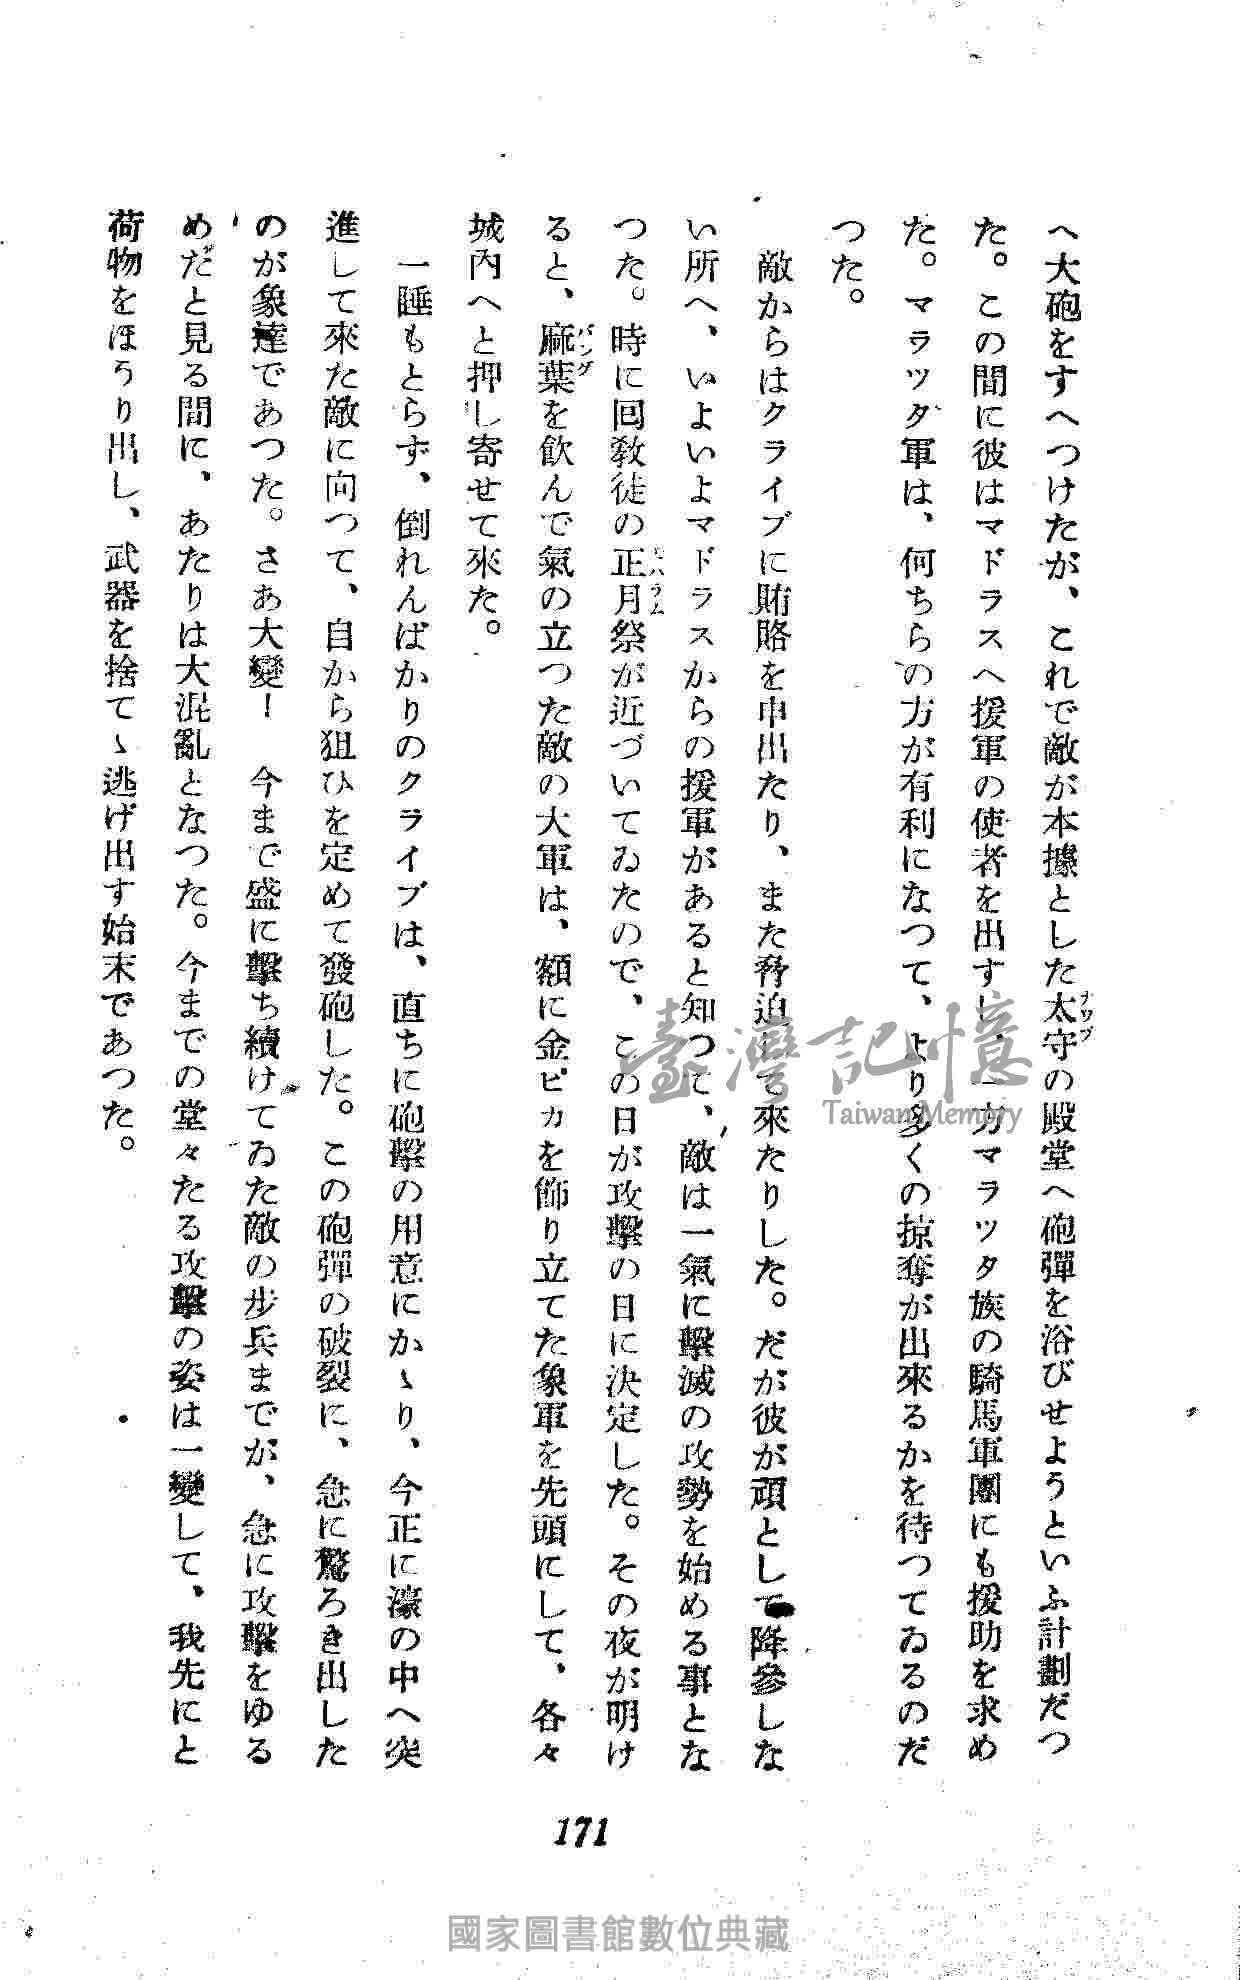 へ大砲をすへつけたが、これで敵が本據とした太守の殿堂へ砲彈を浴びせようといふ計劃だつ
た。この間に彼はマドラスへ援軍の使者を出すし、一方マラツタ族の騎馬軍團にも援助を求め
た。マラツタ軍は、何ちらの方が有利になつて、より多くの掠奪が出來るかを待つてゐるのだ
つた。
敵からはクライブに賄賂を申出たり、また脅迫して來たりした。だが彼が頑として降參しな
い所へ、いよいよマドラスからの援軍があると知つて、敵は一氣に擊滅の攻勢を始める事とな
つた。時に回敎徒の正月祭が近づいてゐたので、この日が攻擊の日に決定した。その夜が明け
ると、麻葉を飮んで氣の立つた敵の大軍は、額に金ピカを飾り立てた象軍を先頭にして、各々
バング
城內へと押し寄せて來た。
一睡もとらず、倒れんばかりのクライブは、直ちに砲擊の用意にかゝり、今正に濠の中へ突
進して來た敵に向つて、自から狙ひを定めて發砲した。この砲彈の破裂に、急に驚ろき出した
のが象達であつた。さあ大變！　今まで盛に擊ち續けてゐた敵の步兵までが、急に攻擊をゆる
めだと見る間に、あたりは大混亂となつた。今までの堂々たる攻擊の姿は一變して、我先にと
荷物をほうり出し、武器を捨てゝ逃げ出す始末であつた。
171
臺灣記憶
Taiwan Memory
國家圖書館數位典藏